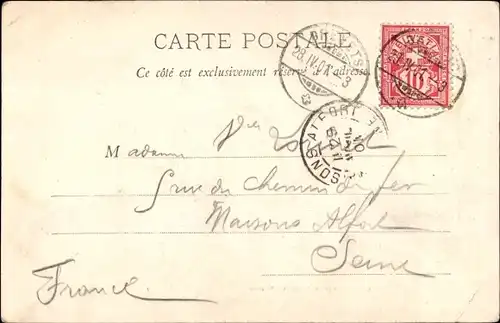 CARTE POSTALE
Ce côté est exclusivement réservé à l'adresse.
28.IV.01. 3
10
MAISONS-ALFORT
Madame
5 rue du Chemin de fer
Maisons Alfort
Seine
France